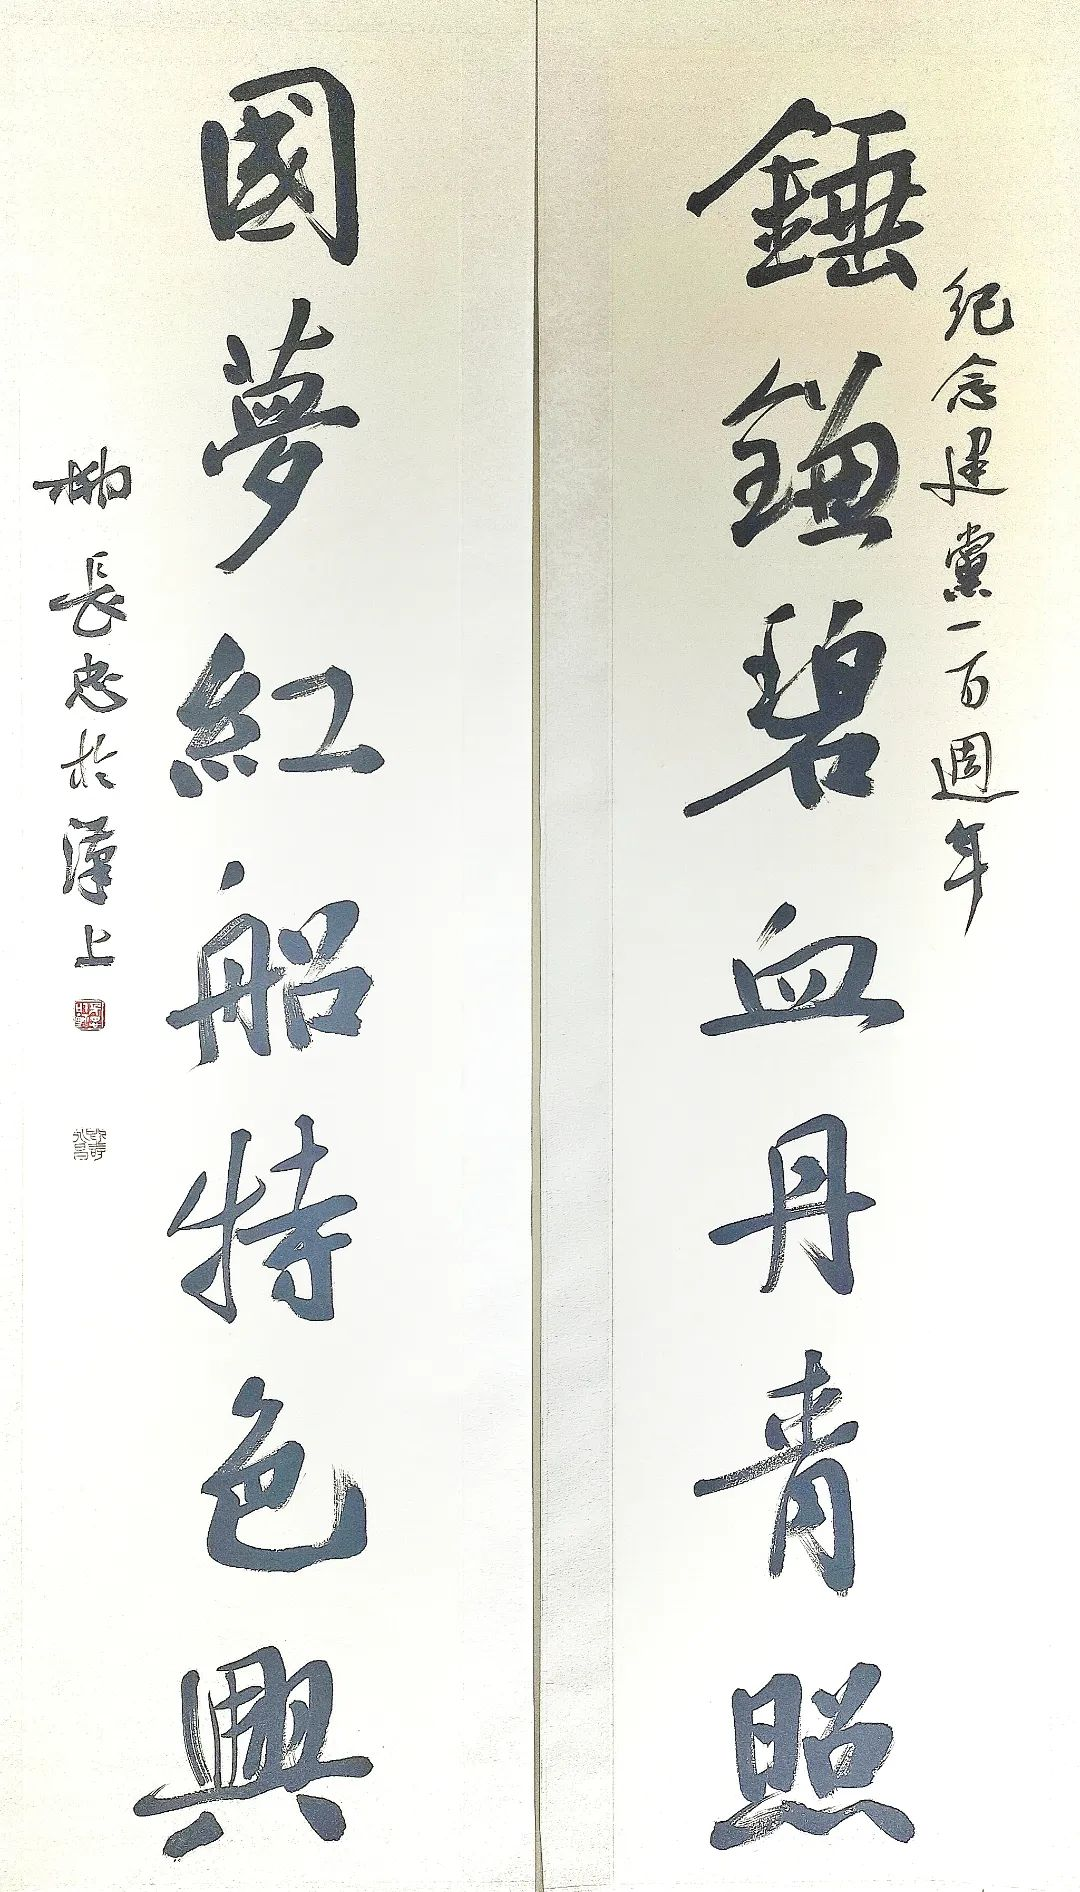 紀念建黨一百週年
錘鐮碧血丹青照
國夢紅船特色興
柳長忠於漢上